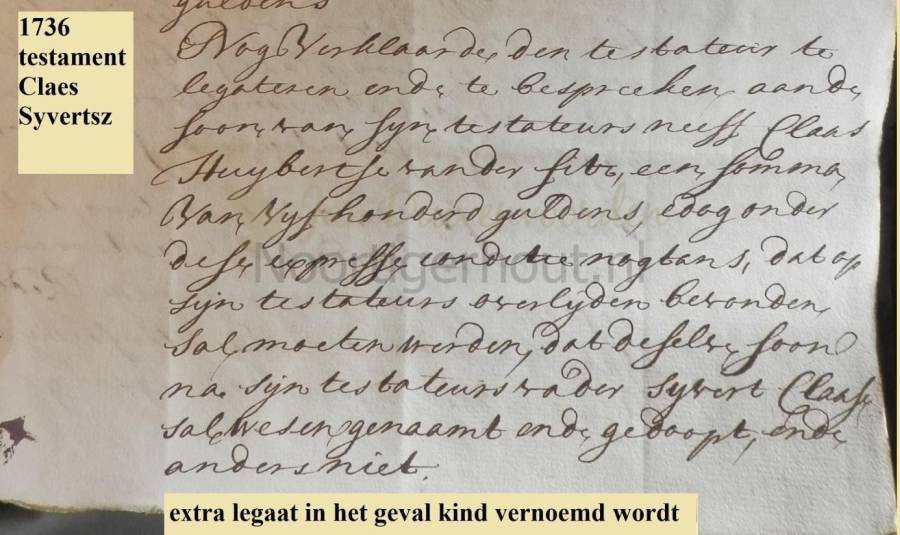 1736
testament
Claes
Syvertsz
guldens
Nog Verklaarde, den testateur te
legateren ende te bespreeken aan de
soon, van, syn, testateurs neeff Claas
Huybertse van der
een, somma,
Van, Vyf honderd guldens, edog onder
dese, expresse, conditie nogtans, dat op
sijn testateurs overlyden bevonden,
sal, moeten werden, dat deselve, soon
na sijn testateurs vader Syvert Claasse
sal, wesen, genaamt ende, gedoopt, ende,
anders niet.
Noordgerhout.nl
extra legaat in het geval kind vernoemd wordt